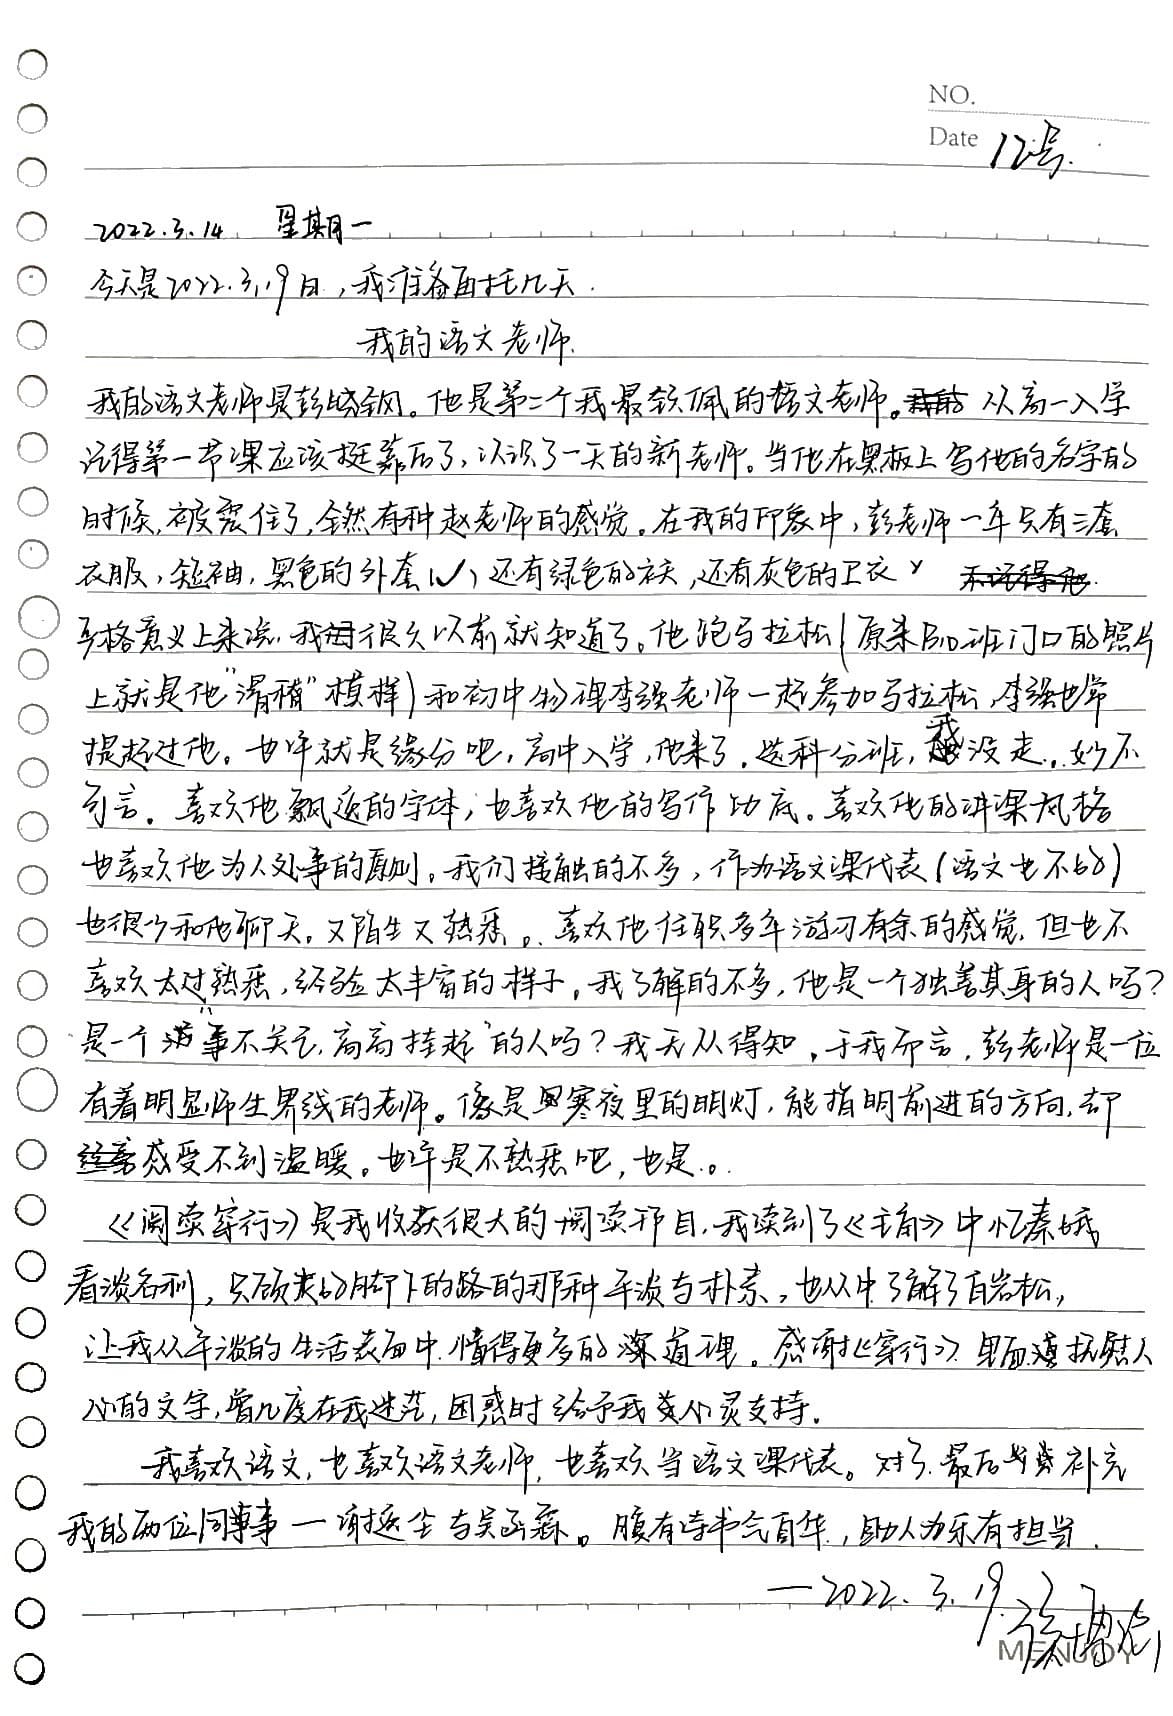 NO.
Date 12号.
2022.3.14 星期一
今天是2022.3.19日,我准备面托几天.
我的语文老师.
我的语文老师是彭。他是第二个我最钦佩的语文老师。从高一入学
记得第一节课应该挺靠后了,认识了一天的新老师。当他在黑板上写他的名字的
时候,被震住了,全然有种赵老师的感觉。在我的印象中,彭老师一年只有三套
衣服,短袖,黑色的外套(✓),还有绿色的袄,还有灰色的卫衣
严格意义上来说,我很久以前就知道了。他跑马拉松(原来B10班门口的照片
上就是他"滑稽"模样)和初中物理李强老师一起参加马拉松,李强也常
提起过他。也许就是缘分吧,高中入学,他来了.选科分班,我没走..妙不
可言。喜欢他飘逸的字体,也喜欢他的写作功底。喜欢他的讲课风格
也喜欢他为人处事的原则。我们接触的不多,作为语文课代表(语文也不好)
也很少和他聊天。又陌生又熟悉。.喜欢他任职多年游刃有余的感觉,但也不
喜欢太过熟悉,经验太丰富的样子。我了解的不多,他是一个独善其身的人吗?
是一个"事不关己,高高挂起"的人吗?我无从得知.于我而言,彭老师是一位
有着明显师生界线的老师。像是寒夜里的明灯,能指明前进的方向,却
感受不到温暖。也许是不熟悉吧,也是。.
《阅读穿行》是我收获很大的阅读项目,我读到了《主角》中忆秦娥
看淡名利,只顾走好脚下的路的那种平淡与朴素,也从中了解了白岩松,
让我从平淡的生活表面中,懂得更多的深道理。感谢《穿行》里面抚慰人
心的文字,曾几度在我迷茫,困惑时给予我心灵支持.
我喜欢语文,也喜欢语文老师,也喜欢当语文课代表。对了,最后补充
我的两位同事—谢与吴函霖。腹有诗书气自华,助人为乐有担当.
—2022.3.19.
MENJOY